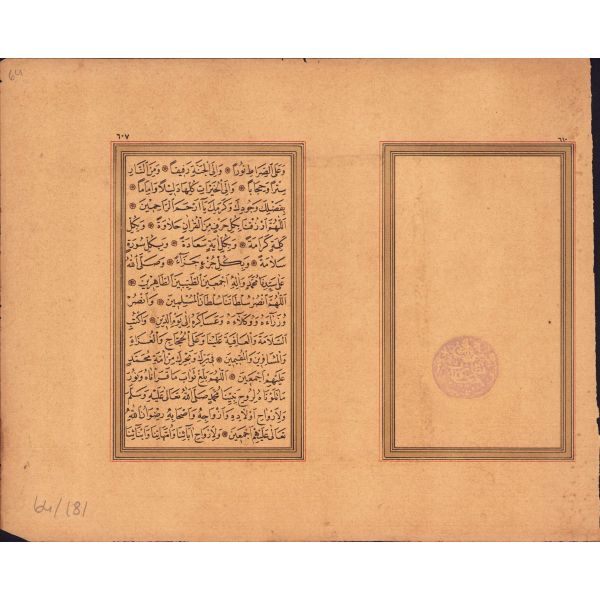 64
٦٠٧
٦١٠
وَعَلَى الصِّرَاطِ نُورًا ۞ وَاِلَى الْجَنَّةِ رَفِيقًا ۞ وَمِنَ النَّارِ
سِتْرًا وَحِجَابًا ۞ وَاِلَى الْخَيْرَاتِ كُلِّهَا دَلِيلًا وَاِمَامًا ۞
بِفَضْلِكَ وَجُودِكَ وَكَرَمِكَ يَا اَرْحَمَ الرَّاحِمِينَ ۞
اَللّٰهُمَّ ارْزُقْنَا بِكُلِّ حَرْفٍ مِنَ الْقُرْاٰنِ حَلَاوَةً ۞ وَبِكُلِّ
كَلِمَةٍ كَرَامَةً ۞ وَبِكُلِّ اٰيَةٍ سَعَادَةً ۞ وَبِكُلِّ سُورَةٍ
سَلَامَةً ۞ وَبِكُلِّ جُزْءٍ جَزَاءً ۞ وَصَلَّى اللّٰهُ
عَلٰى سَيِّدِنَا مُحَمَّدٍ وَاٰلِهِ اَجْمَعِينَ الطَّيِّبِينَ الطَّاهِرِينَ ۞
اَللّٰهُمَّ انْصُرْ سُلْطَانَنَا سُلْطَانَ الْمُسْلِمِينَ ۞ وَانْصُرْ
وُزَرَاءَهُ وَوُكَلَاءَهُ وَعَسَاكِرَهُ اِلٰى يَوْمِ الدِّينِ ۞ وَاكْتُبِ
السَّلَامَةَ وَالْعَافِيَةَ عَلَيْنَا وَعَلَى الْحُجَّاجِ وَالْغُزَاةِ
وَالْمُسَافِرِينَ وَالْمُقِيمِينَ ۞ فِى بَرِّكَ وَبَحْرِكَ مِنْ اُمَّةِ مُحَمَّدٍ
عَلَيْهِمْ اَجْمَعِينَ ۞ اَللّٰهُمَّ بَلِّغْ ثَوَابَ مَا قَرَأْنَاهُ وَنُورَ
مَا تَلَوْنَاهُ لِرُوحِ نَبِيِّنَا مُحَمَّدٍ صَلَّى اللّٰهُ تَعَالٰى عَلَيْهِ وَسَلَّمَ
وَلِاَرْوَاحِ اَوْلَادِهِ وَاَزْوَاجِهِ وَاَصْحَابِهِ رِضْوَانُ اللّٰهِ
تَعَالٰى عَلَيْهِمْ اَجْمَعِينَ ۞ وَلِاَرْوَاحِ اٰبَائِنَا وَاُمَّهَاتِنَا وَاَبْنَائِنَا
64/181